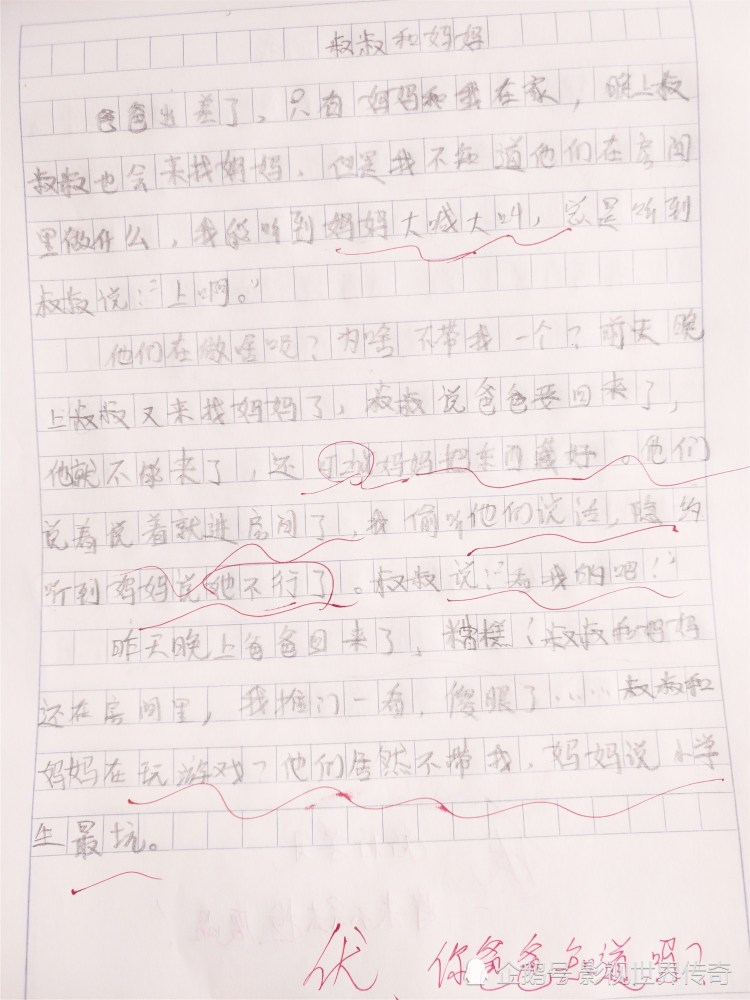 叔叔和妈妈
爸爸出差了，只有妈妈和我在家，晚上叔
叔叔也会来找妈妈，但是我不知道他们在房间
里做什么，我能听到妈妈大喊大叫，总是听到
叔叔说：“上啊。”
他们在做啥呢？为啥不带我一个？前天晚
上叔叔又来找妈妈了，叔叔说爸爸要回来了，
他就不能来了，还 妈妈把东西藏好。他们
说着说着就进房间了，我偷听他们说话，隐约
听到妈妈说她不行了。叔叔说：“看我的吧！”
昨天晚上爸爸回来了，糟糕！叔叔和妈妈
还在房间里，我推门一看，傻眼了……叔叔和
妈妈在玩游戏？他们居然不带我，妈妈说小学
生最坑。
优、你爸爸知道吗？
企鹅号 影视世界传奇